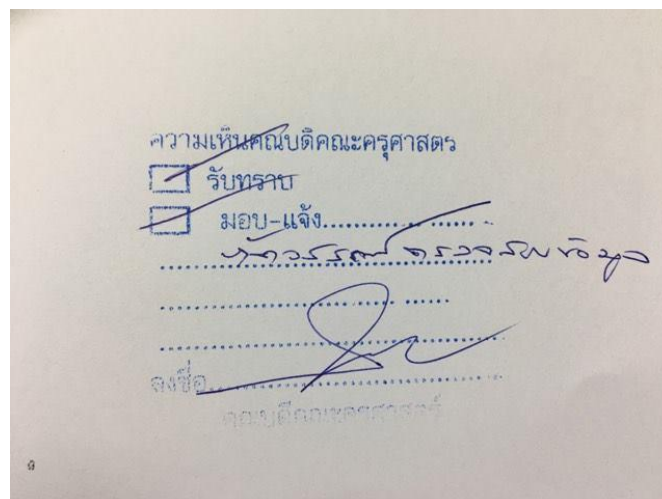 ความเห็นคณบดีคณะครุศาสตร์
รับทราบ
มอบ-แจ้ง....................
ตรวจสอบข้อมูล
ลงชื่อ....................
คณบดีคณะครุศาสตร์